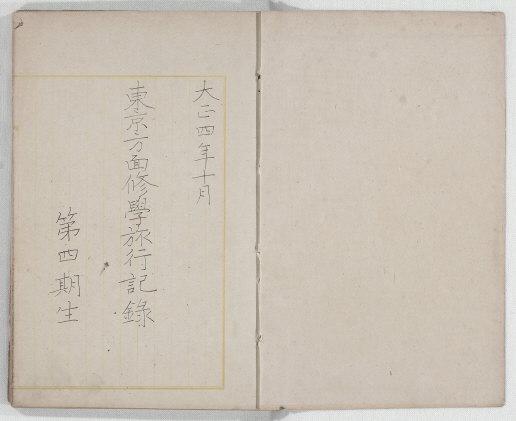 大正四年十月
東京方面修學旅行記錄
第四期生